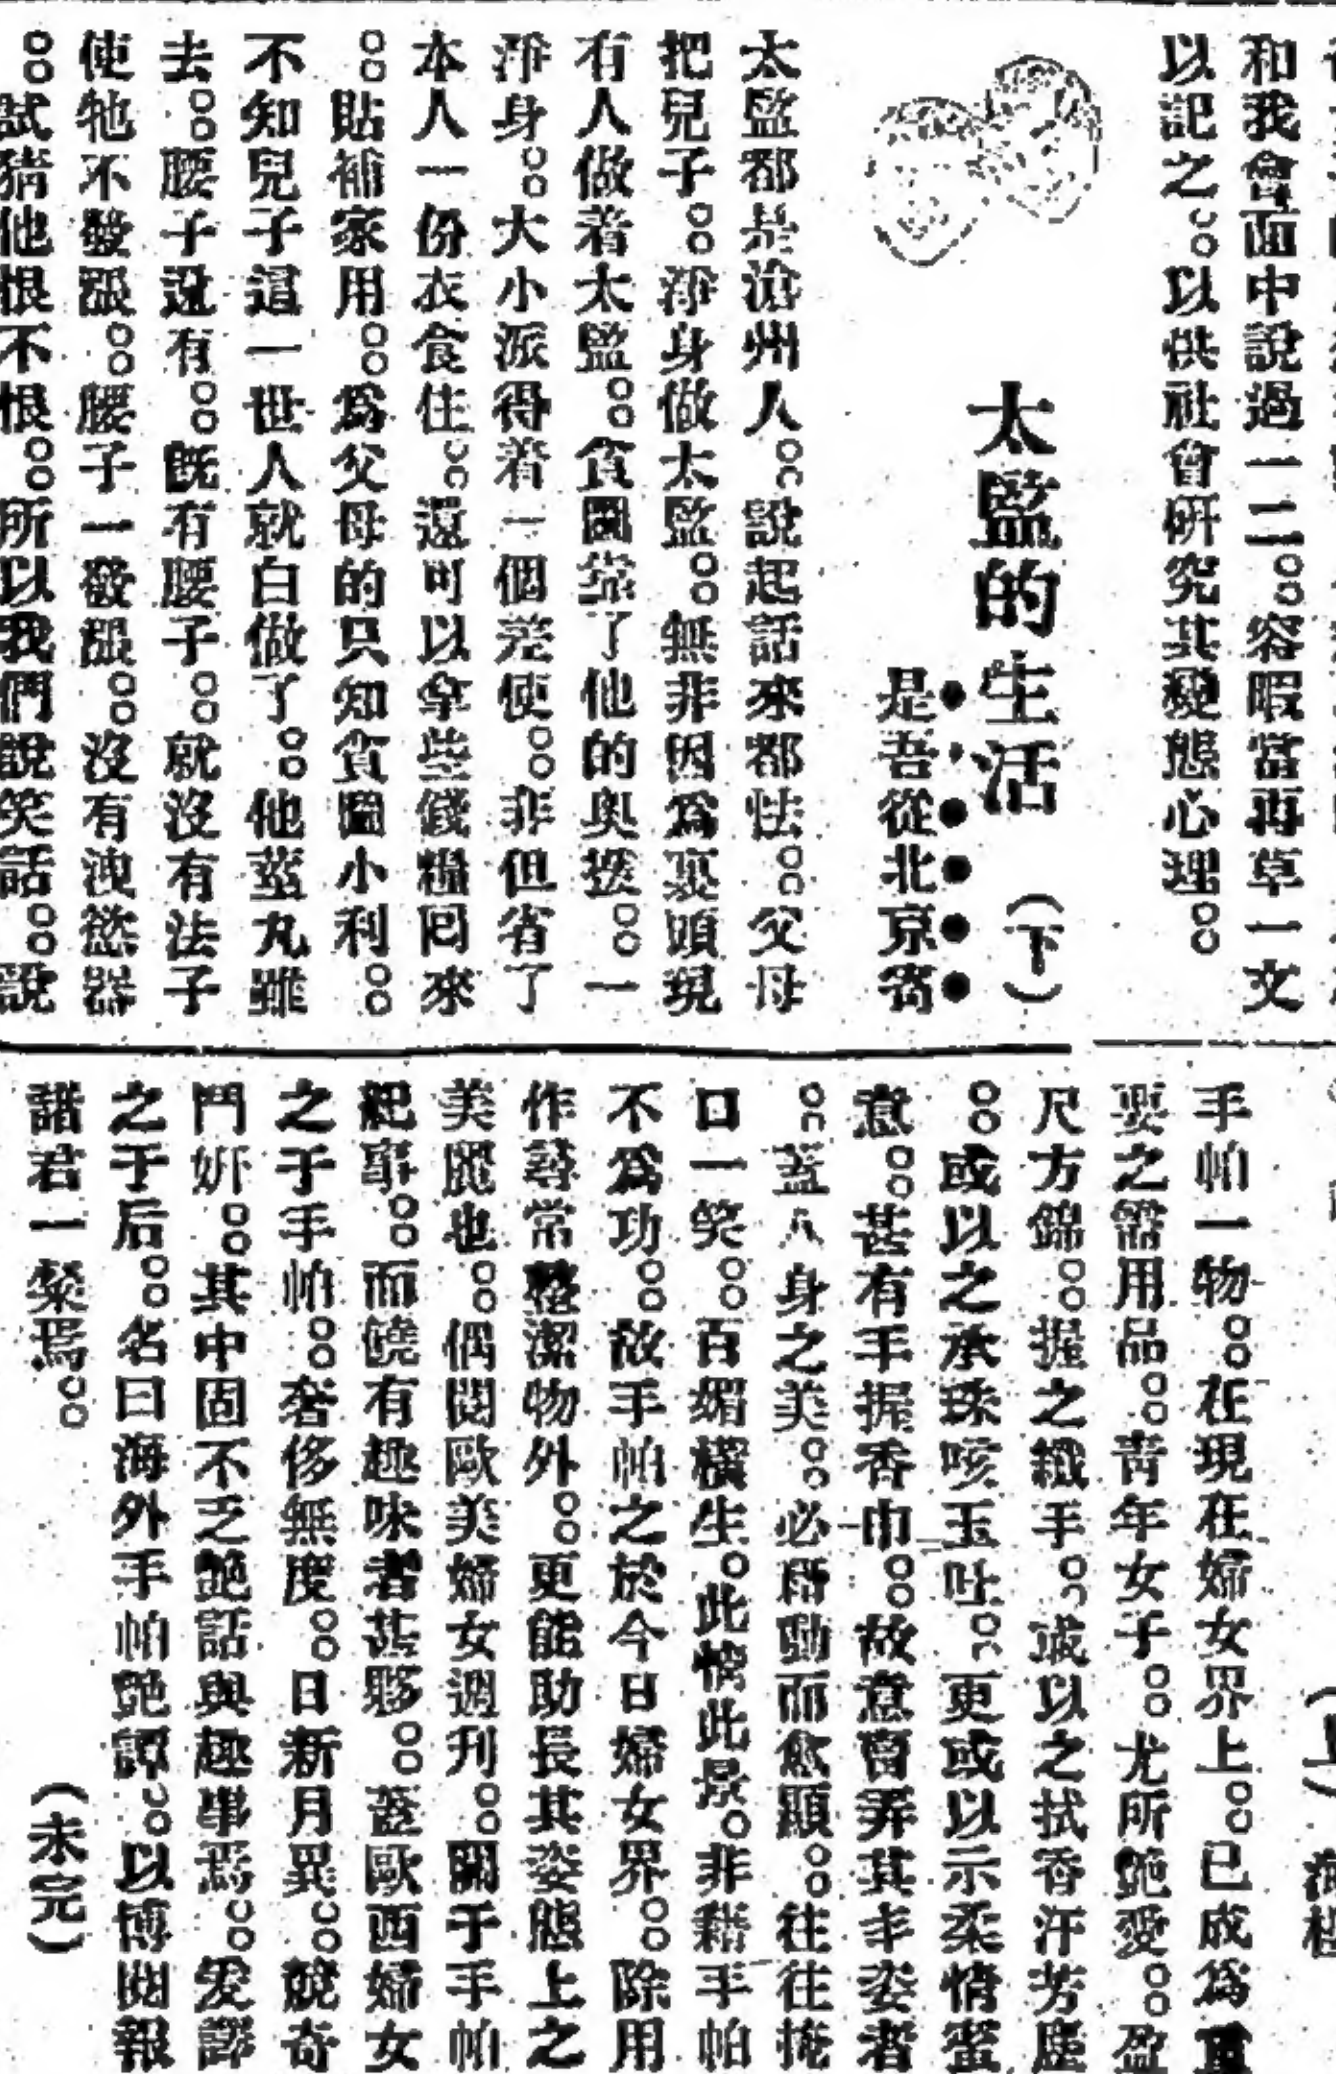 和我會面中說過一二。容暇當再草一文
以記之。以供社會研究其變態心理。
太監的生活（下）
是吾從北京寄
太監都是滄州人。說起話來都怯。父母
把兒子。淨身做太監。無非因爲裏頭現
有人做着太監。貪圖靠了他的奥援。一
淨身。大小派得着一個差使。非但省了
本人一份衣食住。還可以拿些錢糧回來
。貼補家用。爲父母的只知貪圖小利。
不知兒子這一世人就白做了。他莖丸雖
去。腰子還有。旣有腰子。就沒有法子
使牠不發漲。腰子一發漲。沒有洩慾器
。試猜他恨不恨。所以我們說笑話。說
手帕一物。在現在婦女界上。已成爲重
要之需用品。靑年女子。尤所艷愛。盈
尺方錦。握之纖手。或以之拭香汗芳塵
。或以之承珠咳玉吐。更或以示柔情蜜
意。甚有手握香巾。故意賣弄其丰姿者
。蓋人身之美。必階動而愈顯。往往掩
口一笑。百媚橫生。此情此景。非藉手帕
不爲功。故手帕之於今日婦女界。除用
作尋常整潔物外。更能助長其姿態上之
美麗也。偶閱歐美婦女週刊。關于手帕
紀事。而饒有趣味者甚夥。蓋歐西婦女
之于手帕。奢侈無度。日新月異。競奇
鬥姸。其中固不乏艷話與趣事焉。爰譯
之于后。名曰海外手帕艷譚。以博閱報
諸君一粲焉。（未完）
（上）